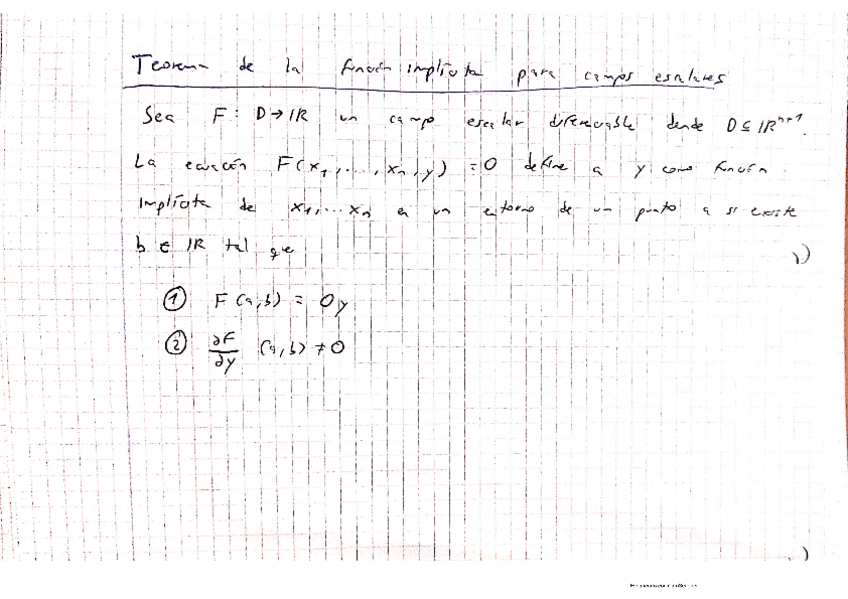 Teorema de la función implícita para campos escalares
Sea F: D→IR un campo escalar diferenciable donde D ⊆ IRⁿ⁺¹.
La ecuación F(x₁,...,xₙ,y) = 0 define a y como función
implícita de x₁,...xₙ en un entorno de un punto a si existe
b ∈ IR tal que
① F(a,b) = 0 y
② ∂F/∂y (a,b) ≠ 0